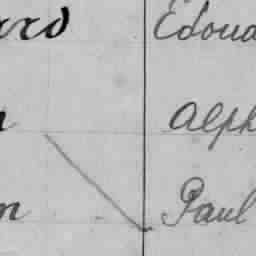 ard Edoua
n Alph
m Paul